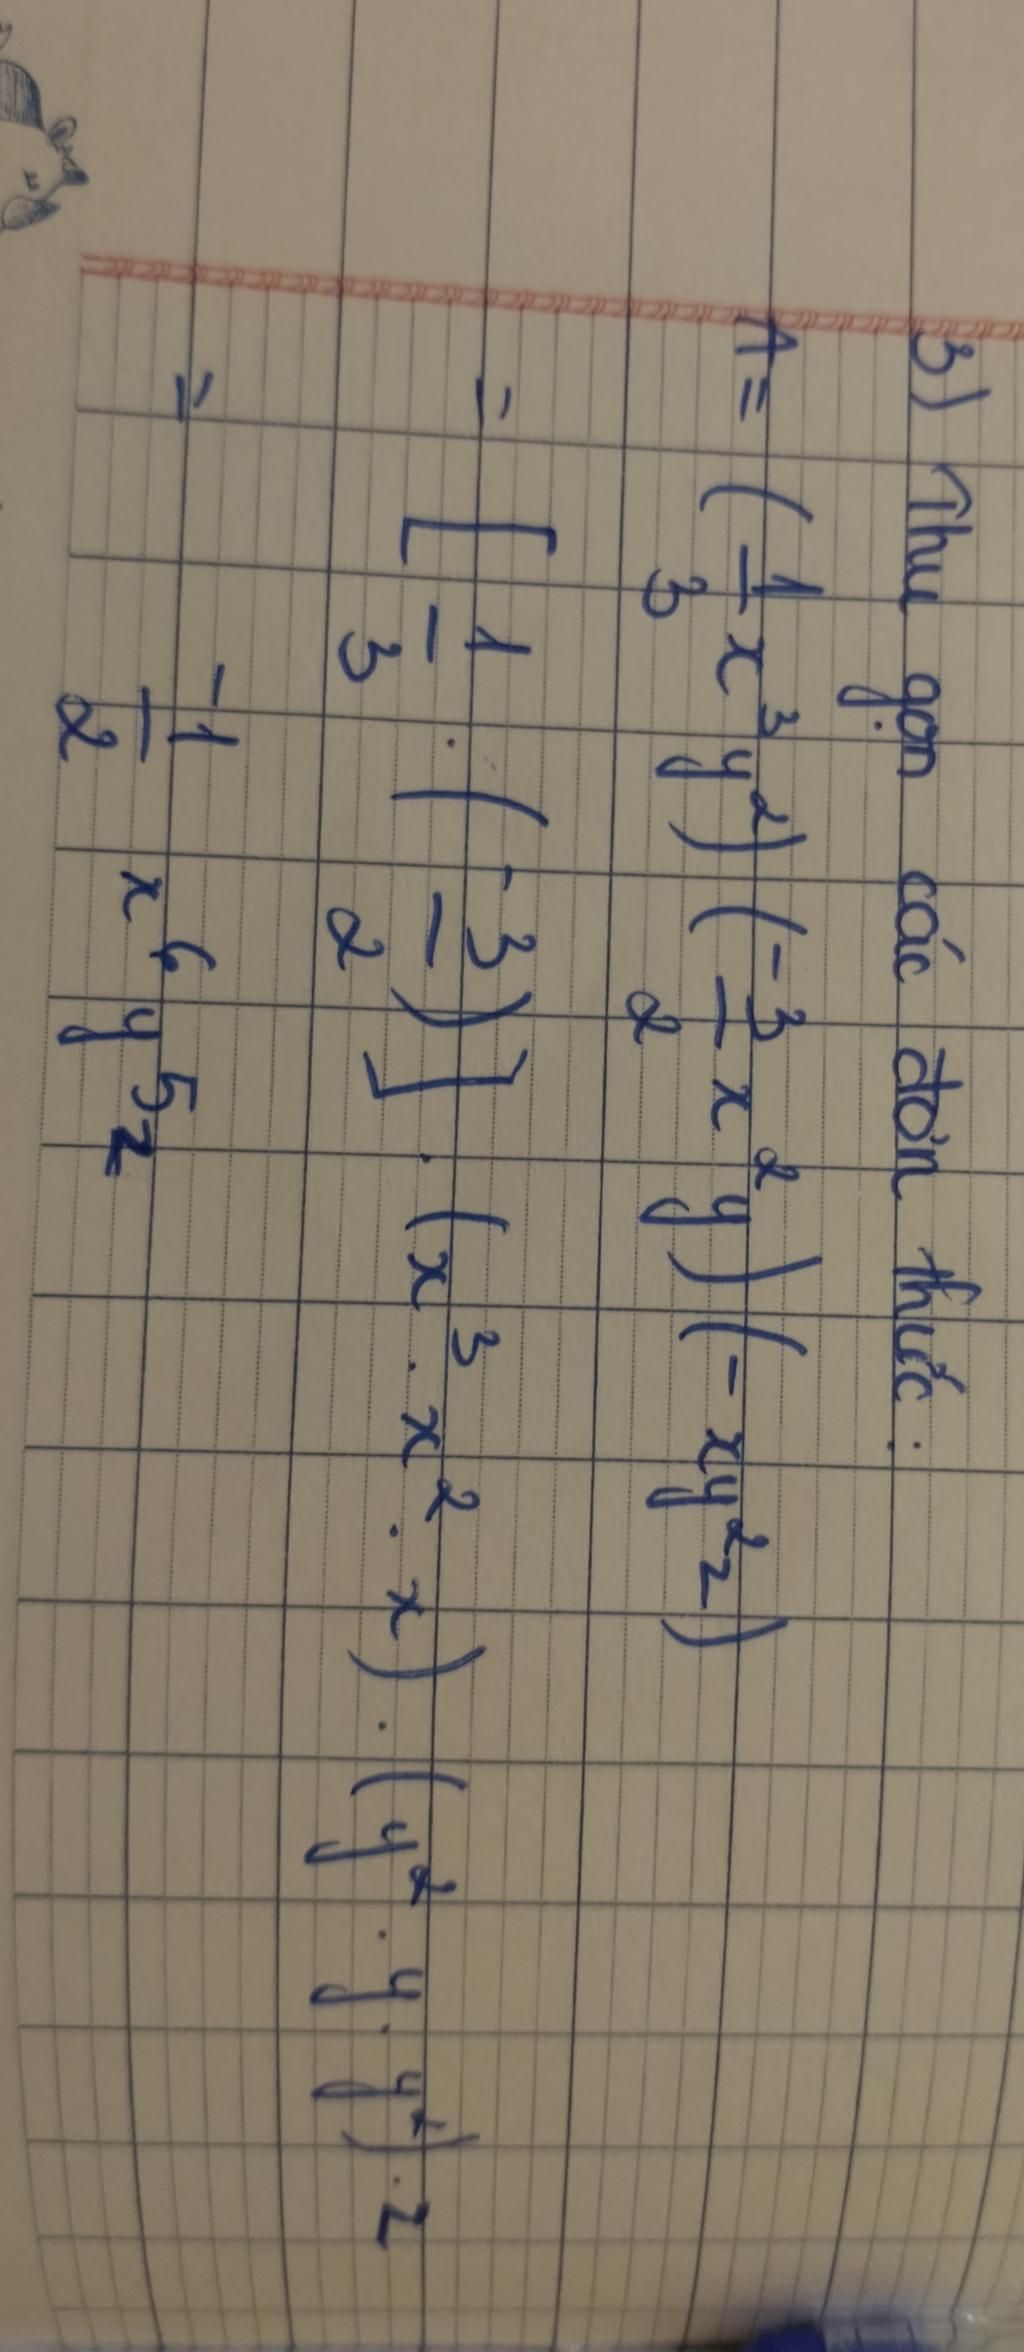 3) Thu gọn các đơn thức:
A = (1/3 x³y²)(-3/2 x²y)(-xy²z)
= [1/3 . (-3/2)] . (x³ . x² . x) . (y² . y . y²) . z
= -1/2 x⁶ y⁵ z